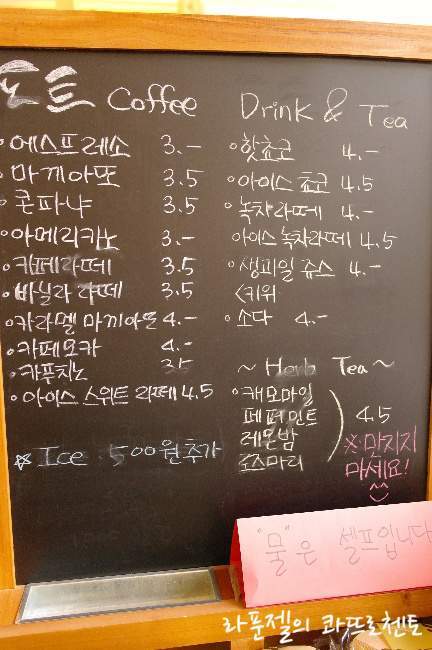 노트 Coffee
• 에스프레소 3.-
• 마끼아또 3.5
• 콘파냐 3.5
• 아메리카노 3.-
• 카페라떼 3.5
• 바닐라 라떼 3.5
• 카라멜 마끼아또 4.-
• 카페모카 4.-
• 카푸치노 3.5
• 아이스 스위트 라떼 4.5
☆ Ice 500원추가
Drink & Tea
• 핫쵸코 4.-
• 아이스 쵸코 4.5
• 녹차라떼 4.-
아이스 녹차라떼 4.5
• 생과일 쥬스 4.-
<키위
• 소다 4.-
~ Herb Tea ~
• 캐모마일
페퍼민트
레몬밤
로즈마리
4.5
※만지지
마세요!
"물"은 셀프입니다
라푼젤의 콰뜨로첸토